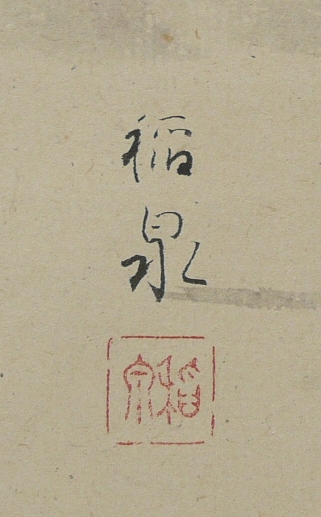 稲
泉
稲泉